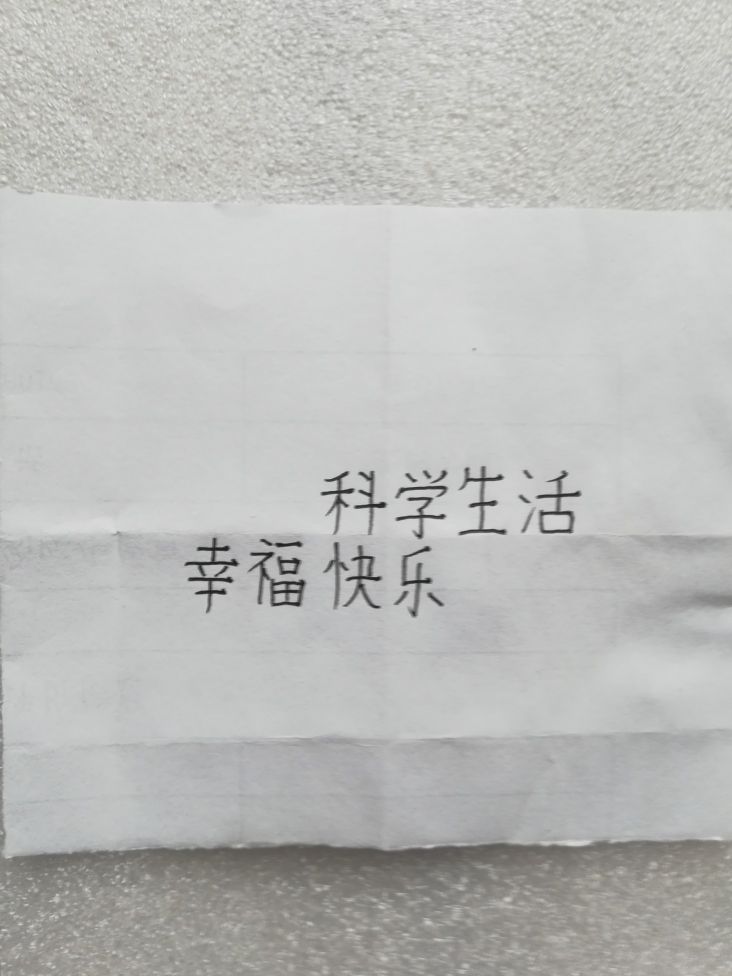 科学生活
幸福快乐